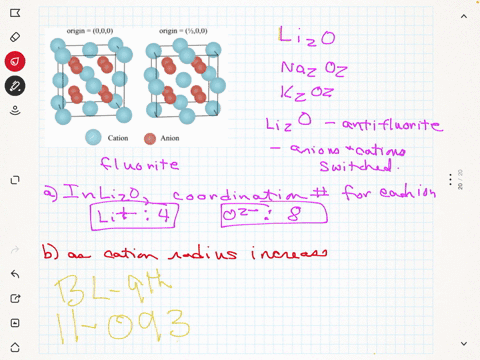 origin = (0,0,0)
origin = (½,0,0)
Cation
Anion
fluorite
Li2O
Na2O2
K2O2
Li2O - antifluorite
- anions + cations
switched.
a) In Li2O, coordination # for each ion
Li+ : 4
O2- : 8
b) as cation radius increase
BL-9th
11-093
20 / 20